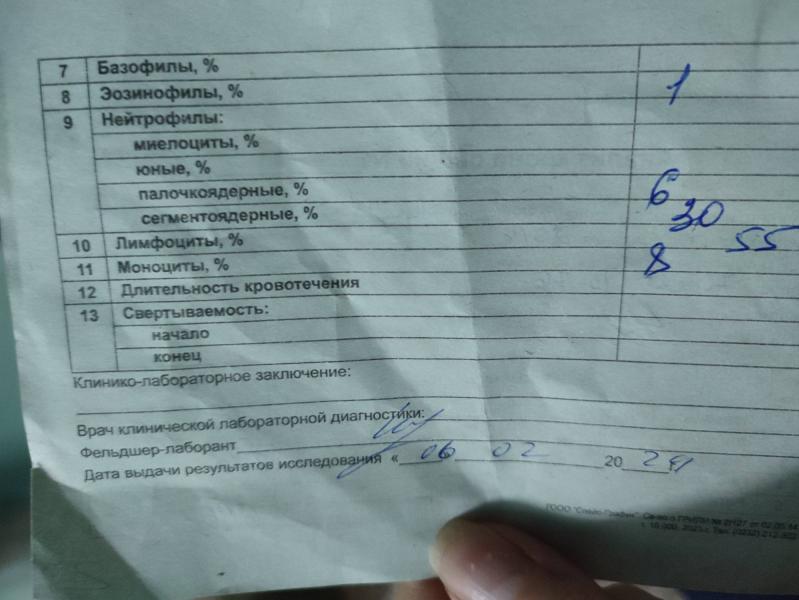 7 Базофилы, %
8 Эозинофилы, % 1
9 Нейтрофилы:
миелоциты, %
юные, %
палочкоядерные, % 6
сегментоядерные, % 30
10 Лимфоциты, % 55
11 Моноциты, % 8
12 Длительность кровотечения
13 Свертываемость:
начало
конец
Клинико-лабораторное заключение:
Врач клинической лабораторной диагностики:
Фельдшер-лаборант
Дата выдачи результатов исследования « 06 02 20 24